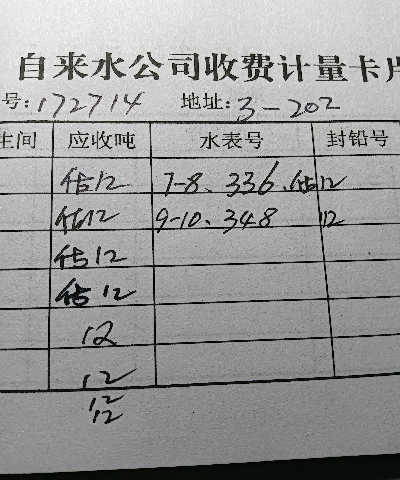 自来水公司收费计量卡片
号:172714 地址:3-202
生间 应收吨 水表号 封铅号
估12 7-8、336、估12
估12 9-10、348 12
估12
估12
12
12
12
12